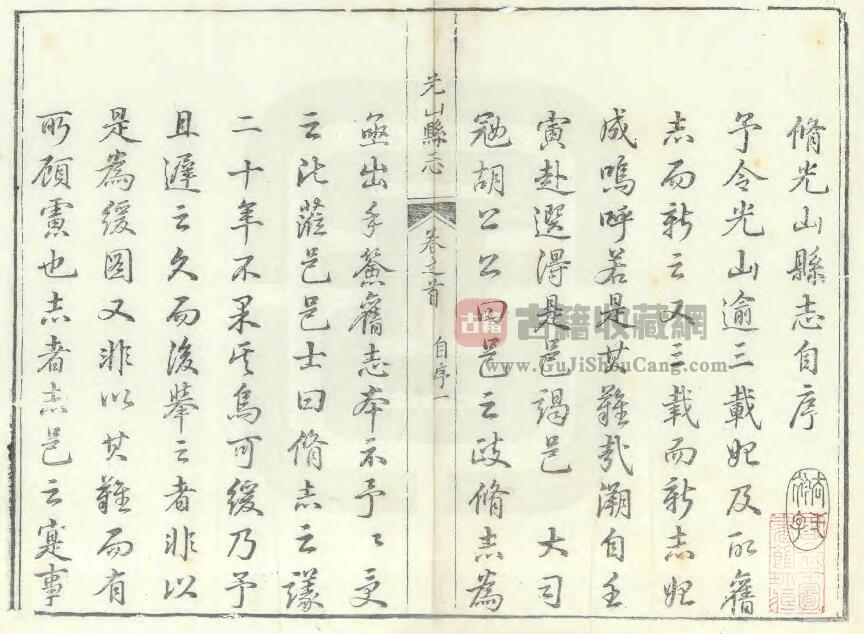 脩光山縣志自序
予令光山逾三載始及取舊
志而新之又三載而新志始
成嗚呼若是其難哉溯自壬
寅赴選得是邑謁邑　大司
冠胡公公曰邑之政脩志為
光山縣志
卷之首
自序一
亟出手篆舊志本示予予受
之比蒞邑邑士曰脩志之議
二十年不果矣烏可緩乃予
且遲之久而後舉之者非以
是為緩圖又非以其難而有
所顧慮也志者志邑之寔事
古籍
古籍收藏網
www.GuJiShouCang.com